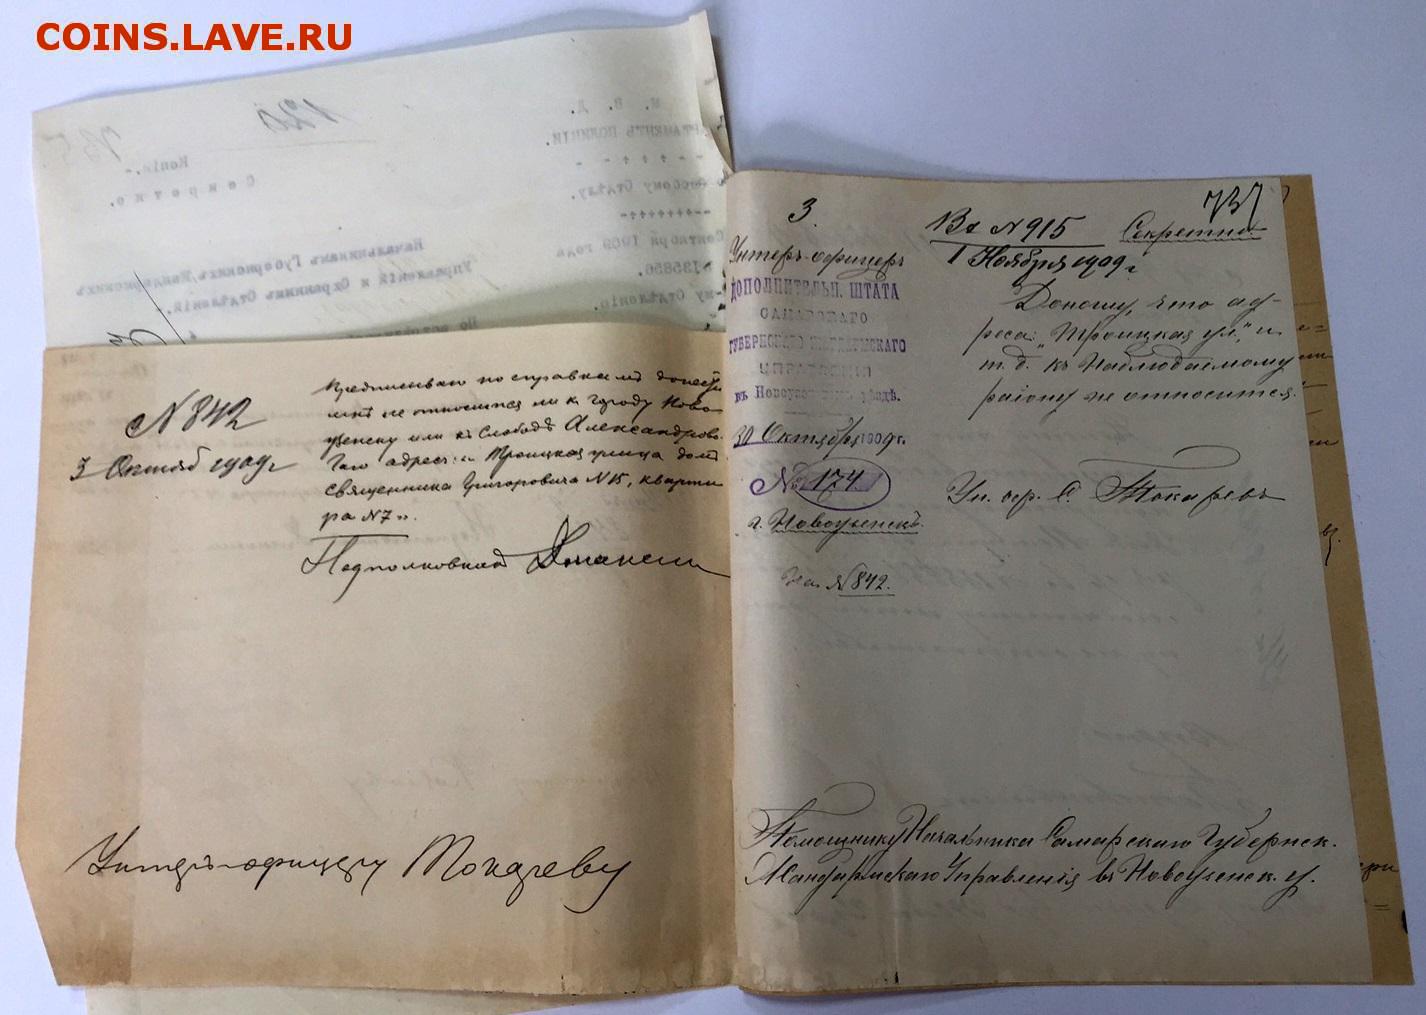 COINS.LAVE.RU
120
735
М. В. Д.
ДЕПАРТАМЕНТЪ ПОЛИЦІИ.
Копія.
Секретно.
Особому Отдѣлу.
Сентября 1909 года
№135856.
Отдѣленію.
Начальникамъ Губернскихъ Жандармскихъ
Управленій и Охраннымъ Отдѣленій.
N 842
3 Октяб 1909 г
Предписываю по справкамъ донести
мнѣ не относится ли къ городу Ново
узенску или къ Слободѣ Александрово
Гаю адресъ: „Троицкая улица домъ
священника Григоровича N 15, кварти
ра N 7".
Подполковникъ
Унтеръ-офицеру Токареву
3.
737
Унтеръ-офицеръ
ДОПОЛНИТЕЛЬН. ШТАТА
САМАРСКАГО
ГУБЕРНСКАГО ЖАНДАРМСКАГО
УПРАВЛЕНІЯ
въ Новоузенскомъ уѣздѣ.
30 Октября 1909 г.
№ 174
г. Новоузенскъ.
На N 842.
Вх N 915 Секретно
1 Ноября 1909 г
Доношу, что ад-
ресъ: „Троицкая ул," и
т. д. къ Наблюдаемому
району не относится.
Ун. оф. С. Токаревъ
Помощнику Начальника Самарскаго Губернск.
Жандармскаго Управленія въ Новоузенск. у.